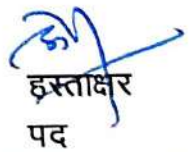 हस्ताक्षर
पद